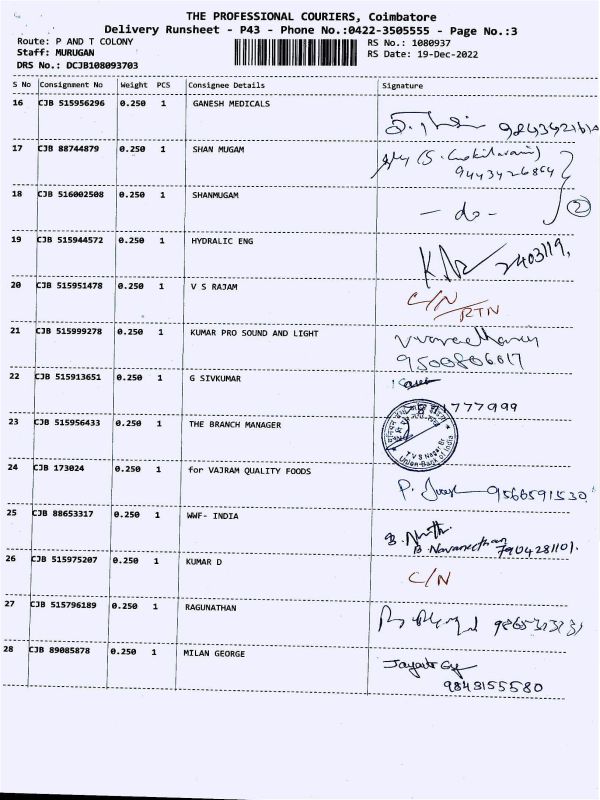 THE PROFESSIONAL COURIERS, Coimbatore
Delivery Runsheet - P43 - Phone No.:0422-3505555 - Page No.:3
Route: P AND T COLONY
RS No.: 1080937
Staff: MURUGAN
RS Date: 19-Dec-2022
DRS No.: DCJB108093703
S No Consignment No Weight PCS Consignee Details Signature
16 CJB 515956296 0.250 1 GANESH MEDICALS
17 CJB 88744879 0.250 1 SHAN MUGAM
9443426864
18 CJB 516002508 0.250 1 SHANMUGAM
- do - 2
19 CJB 515944572 0.250 1 HYDRALIC ENG
2403119,
20 CJB 515951478 0.250 1 V S RAJAM C/N
RTN
21 CJB 515999278 0.250 1 KUMAR PRO SOUND AND LIGHT
9500806017
22 CJB 515913651 0.250 1 G SIVKUMAR
777999
23 CJB 515956433 0.250 1 THE BRANCH MANAGER
T V S Nagar Br
Union Bank of India
24 CJB 173024 0.250 1 for VAJRAM QUALITY FOODS
9566591530
25 CJB 88653317 0.250 1 WWF- INDIA
B. Navaneethan
7904281101.
26 CJB 515975207 0.250 1 KUMAR D C/N
27 CJB 515796189 0.250 1 RAGUNATHAN
28 CJB 89085878 0.250 1 MILAN GEORGE
9843155580